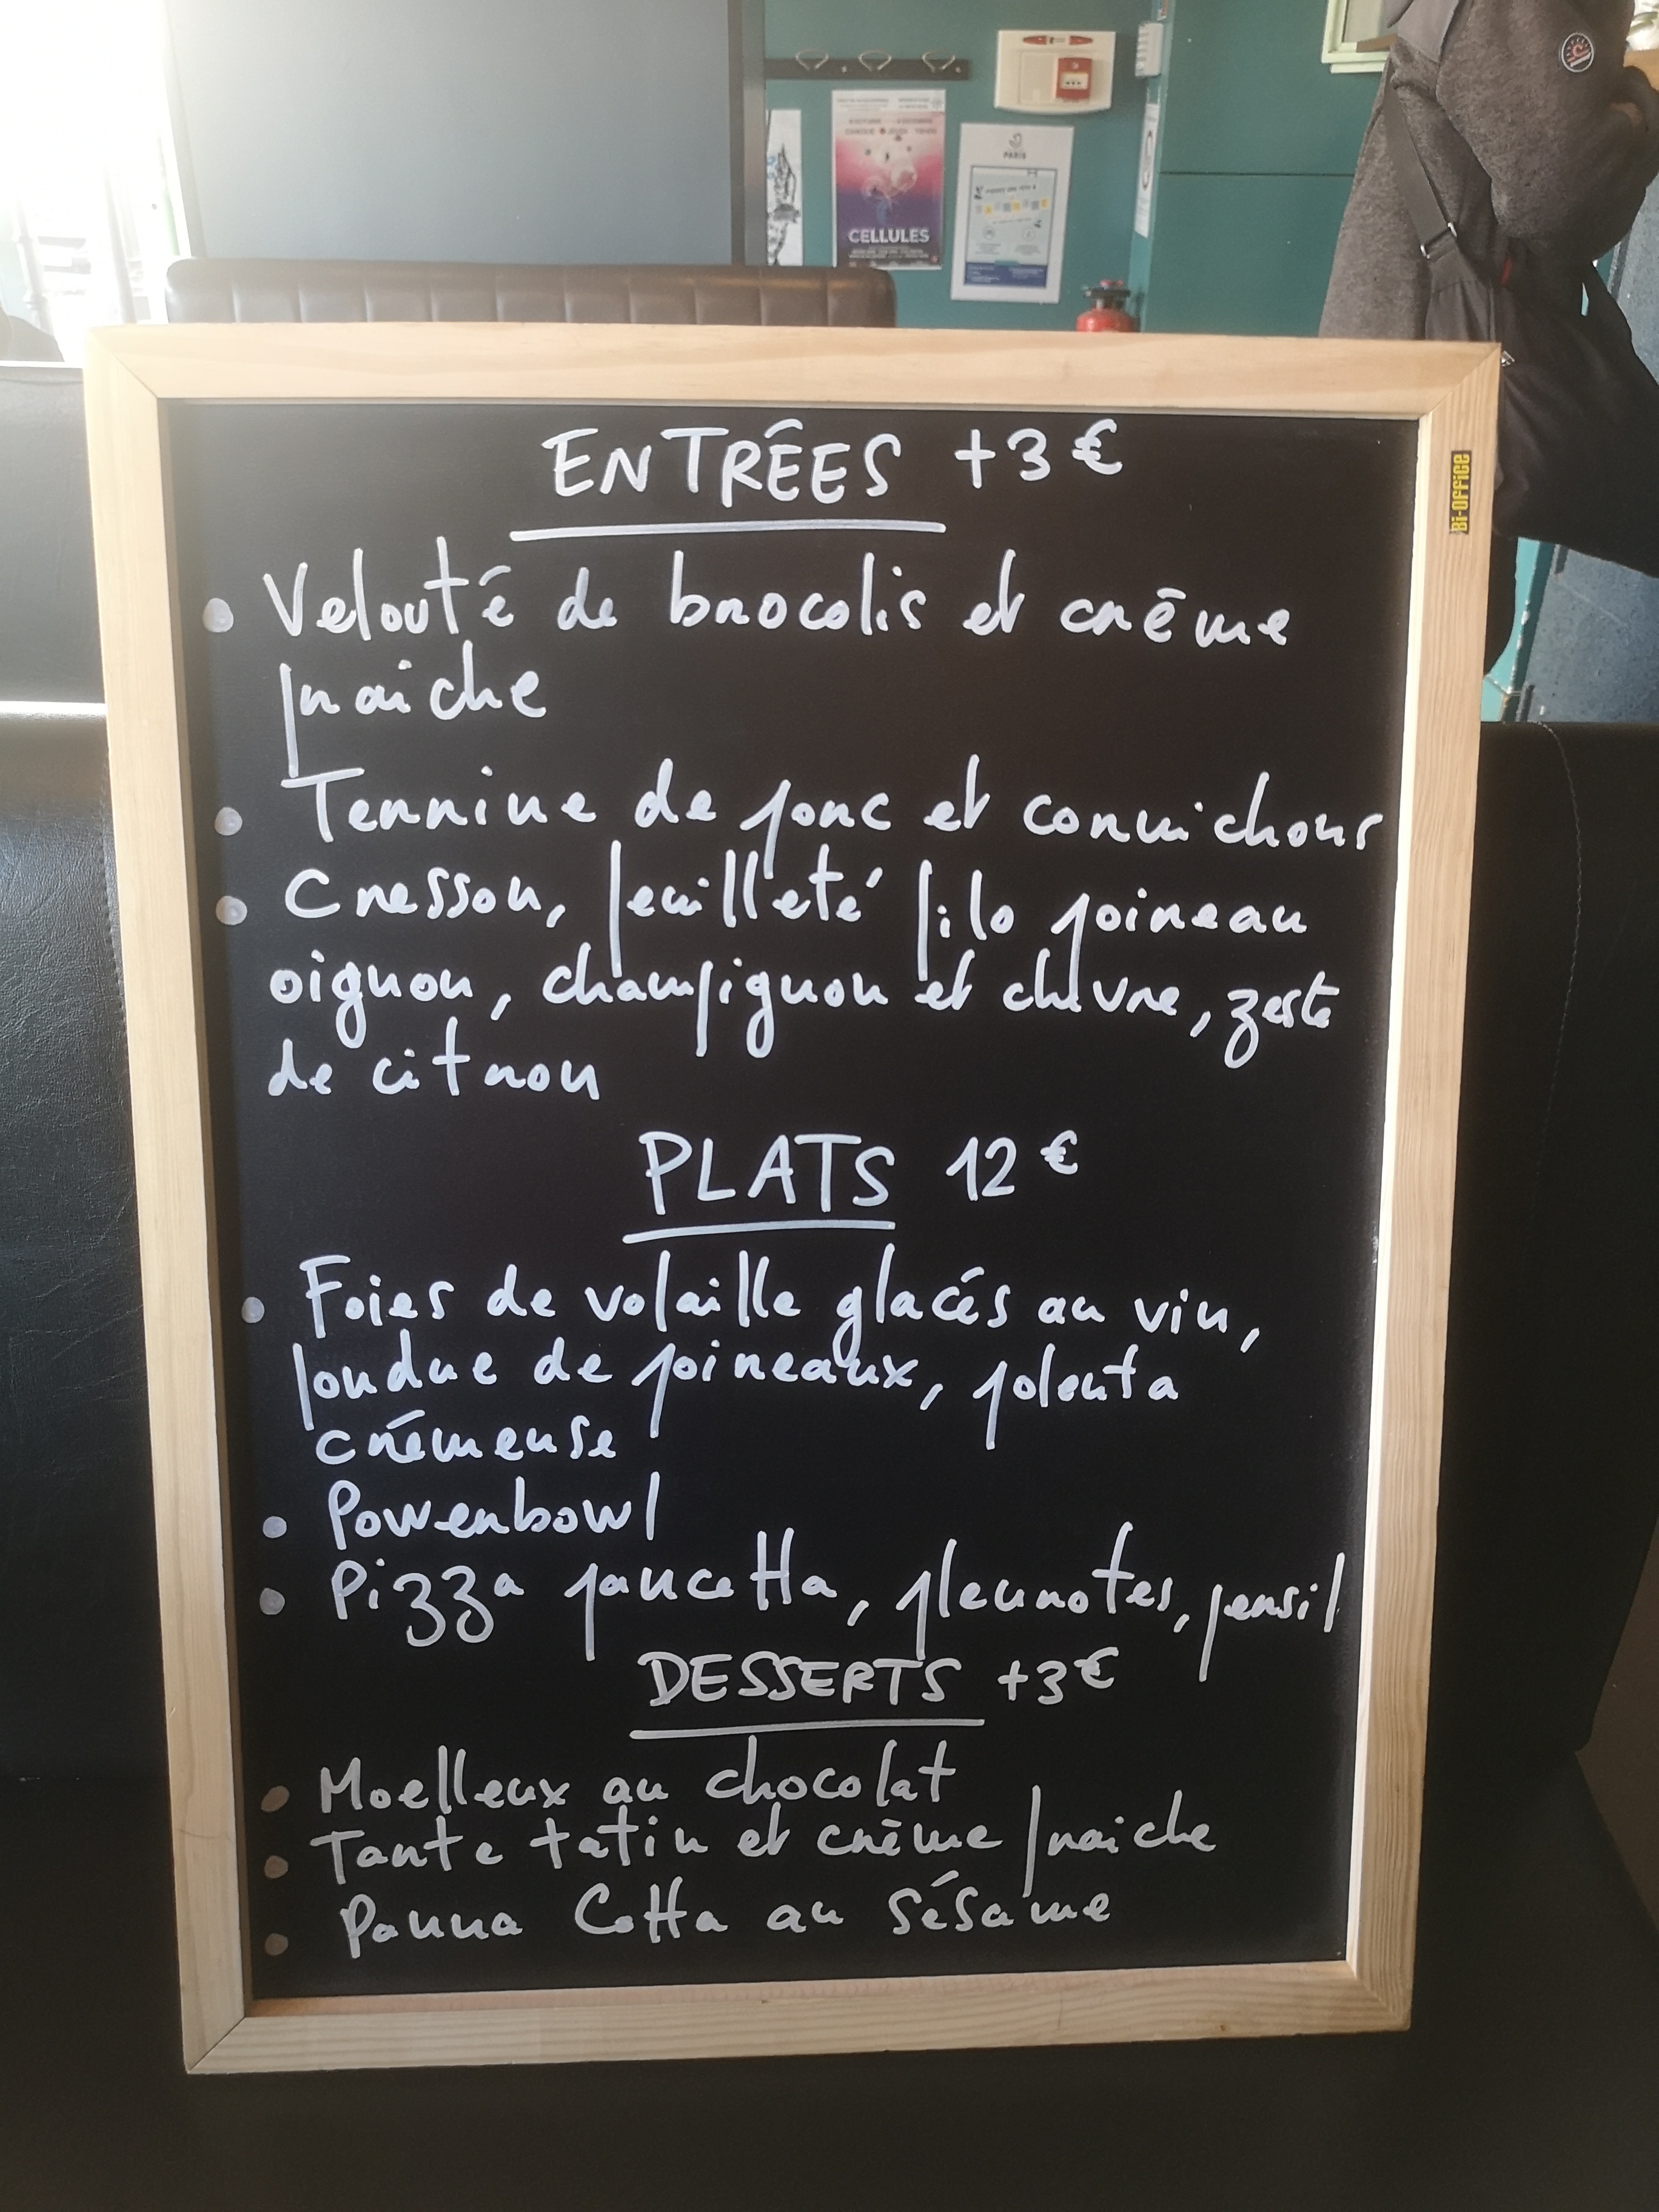 CELLULES
PARIS
Bi-Office
ENTRÉES +3€
• Velouté de brocolis et crème
fraiche
• Terrine de porc et cornichons
• Cresson, feuilleté filo poireau
oignon, champignon et chèvre, zeste
de citron
PLATS 12€
• Foies de volaille glacés au vin,
fondue de poireaux, polenta
crémeuse
• Powerbowl
• Pizza pancetta, pleurotes, persil
DESSERTS +3€
• Moelleux au chocolat
• Tarte tatin et crème fraiche
• Panna Cotta au sésame